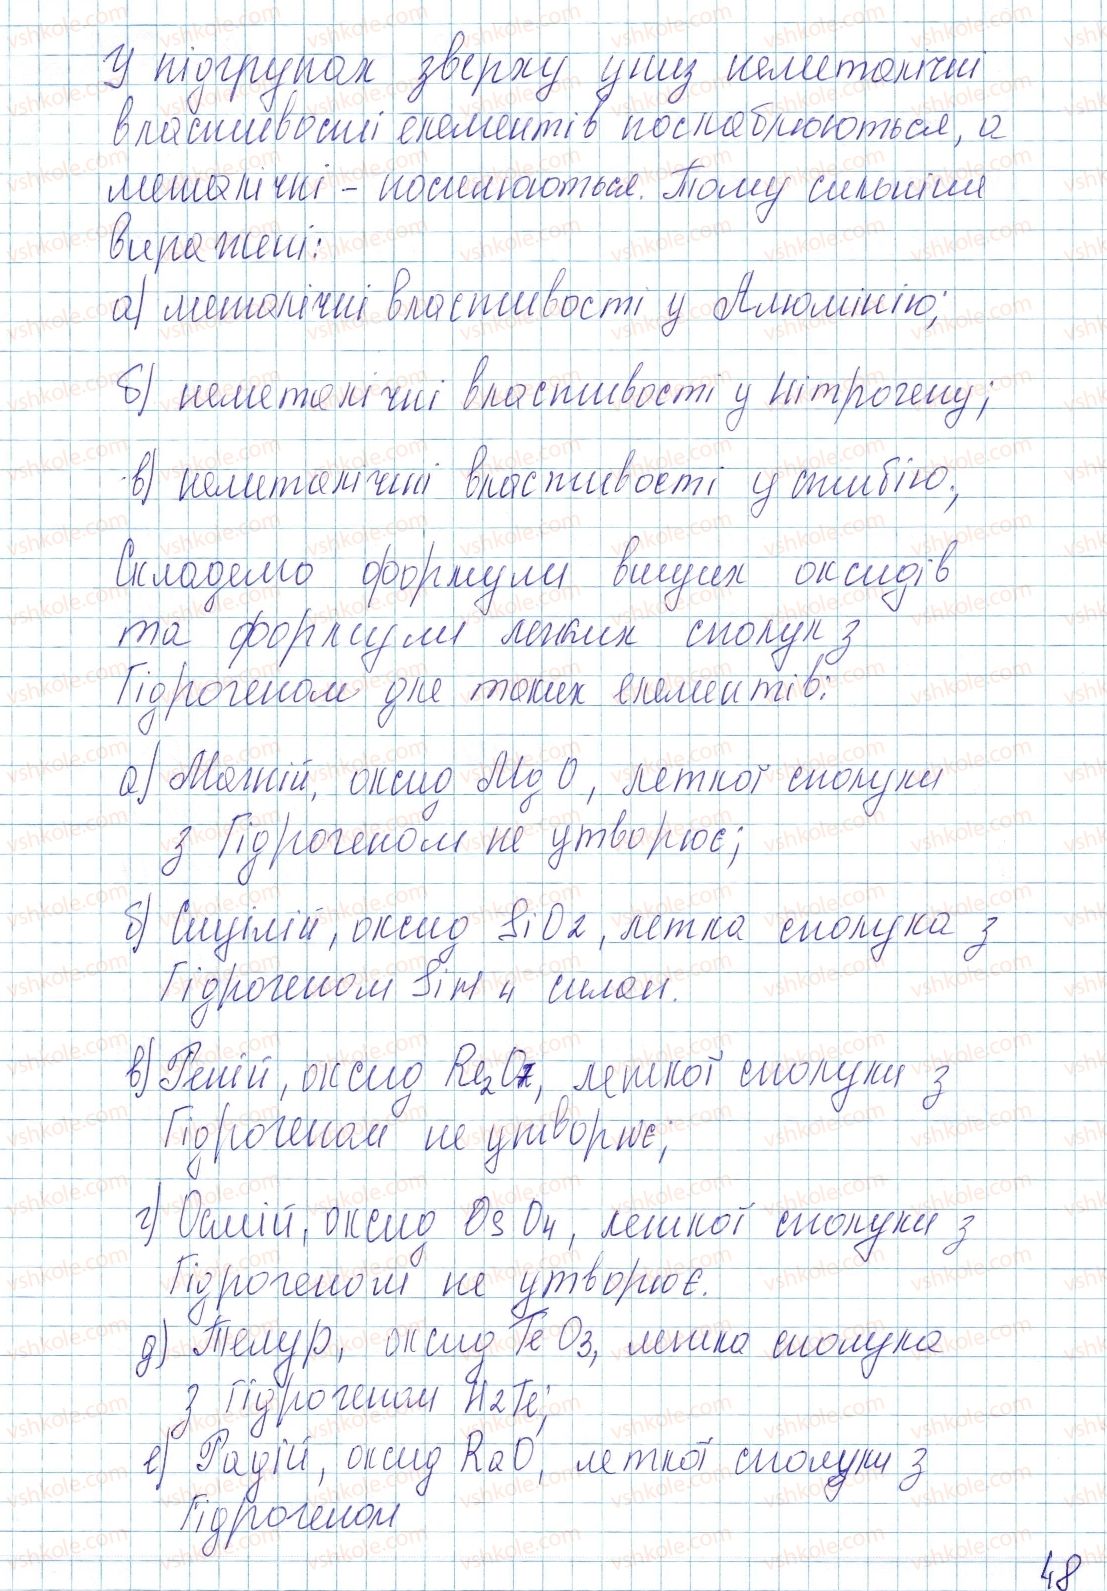 У підгрупах зверху униз неметалічні
властивості елементів послаблюються, а
металічні - посилюються. Тому сильніше
виражені:
а) металічні властивості у Алюмінію;
б) неметалічні властивості у Нітрогену;
в) неметалічні властивості у стибію;
Складемо формули вищих оксидів
та формули летких сполук з
Гідрогеном для таких елементів:
а) Магній, оксид MgO, леткої сполуки
з Гідрогеном не утворює;
б) Силіцій, оксид SiO2, летка сполука з
Гідрогеном SiH4 силан.
в) Реній, оксид Re2O7, леткої сполуки з
Гідрогеном не утворює;
г) Осмій, оксид OsO4, леткої сполуки з
Гідрогеном не утворює.
д) Телур, оксид TeO3, летка сполука
з Гідрогеном H2Te;
е) Радій, оксид RaO, леткої сполуки з
Гідрогеном
48